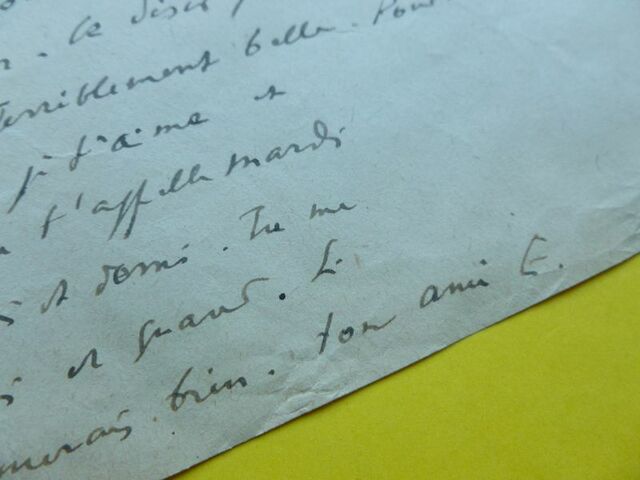 Ce disci
Terriblement belle. Pour
je t'aime et
t'appelle mardi
et demi. Tu me
et quand. Si
bien. ton ami E.